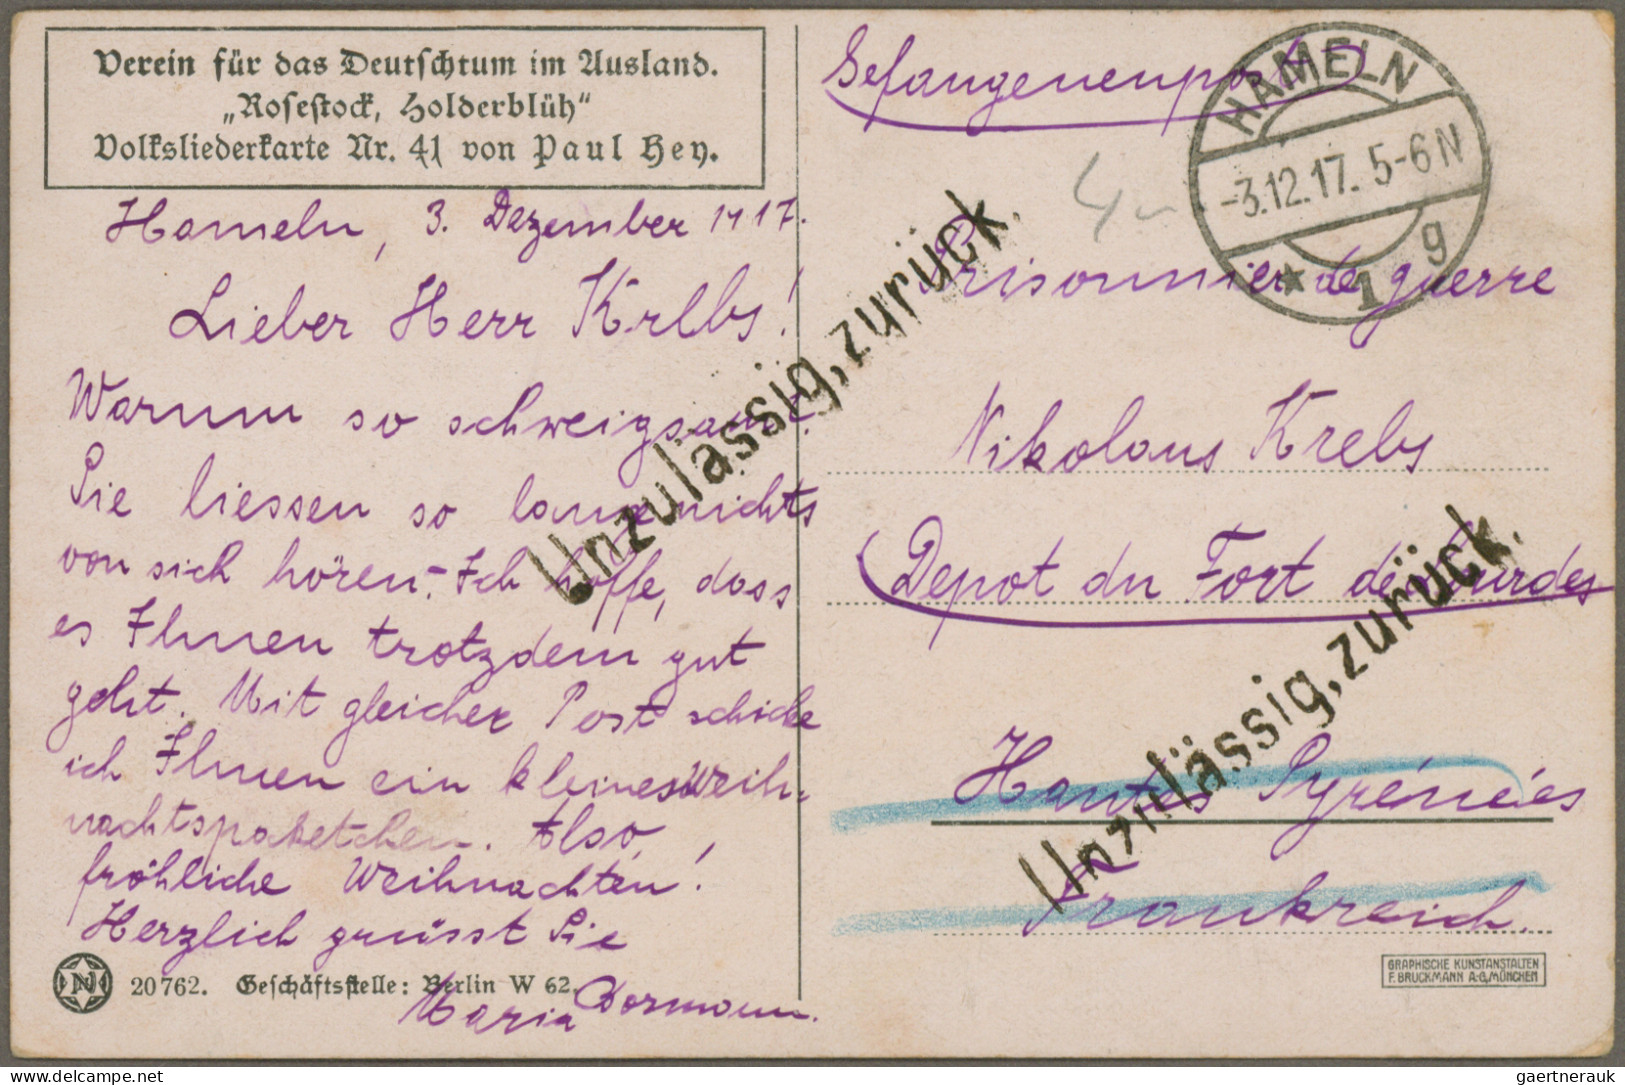 Verein für das Deutschtum im Ausland.
„Rosestock, Holderblüh“
Volksliederkarte Nr. 41 von Paul Hey.
Hameln, 3. Dezember 1917.
Lieber Herr Krebs!
Warum so schweigsam?
Sie liessen so lange nichts
von sich hören. – Ich hoffe, dass
es Ihnen trotzdem gut
geht. Mit gleicher Post schicke
ich Ihnen ein kleines Weih-
nachtspaketchen. Also,
fröhliche Weihnachten!
Herzlich grüsst Sie
Maria
20762. Geschäftsstelle: Berlin W 62.
Gefangenenpost
HAMELN
-3.12.17. 5-6 N
* 1 g
4
Prisonnier de guerre
Nikolaus Krebs
Depot du Fort de Lourdes
Hautes Pyrénées
Frankreich.
Unzulässig, zurück.
Unzulässig, zurück.
GRAPHISCHE KUNSTANSTALTEN
F. BRUCKMANN A.-G., MÜNCHEN
www.delcampe.net
gaertnerauk